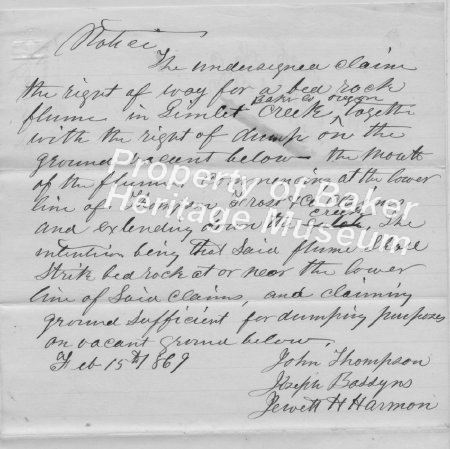 Notice
The undersigned claim
the right of way for a bed rock
Baker Co Oregon
flume in Gimlet Creek, together
with the right of dump on the
ground vacant below the mouth
of the flume, commencing at the lower
line of Thompson
creek
and extending down the The
intention being that said flume shall
strike bed rock at or near the lower
line of said claims, and claiming
ground sufficient for dumping purposes
on vacant ground below.
Feb 15th 1869
John Thompson
Joseph
Jewett H Harmon
Property of Baker
Heritage Museum